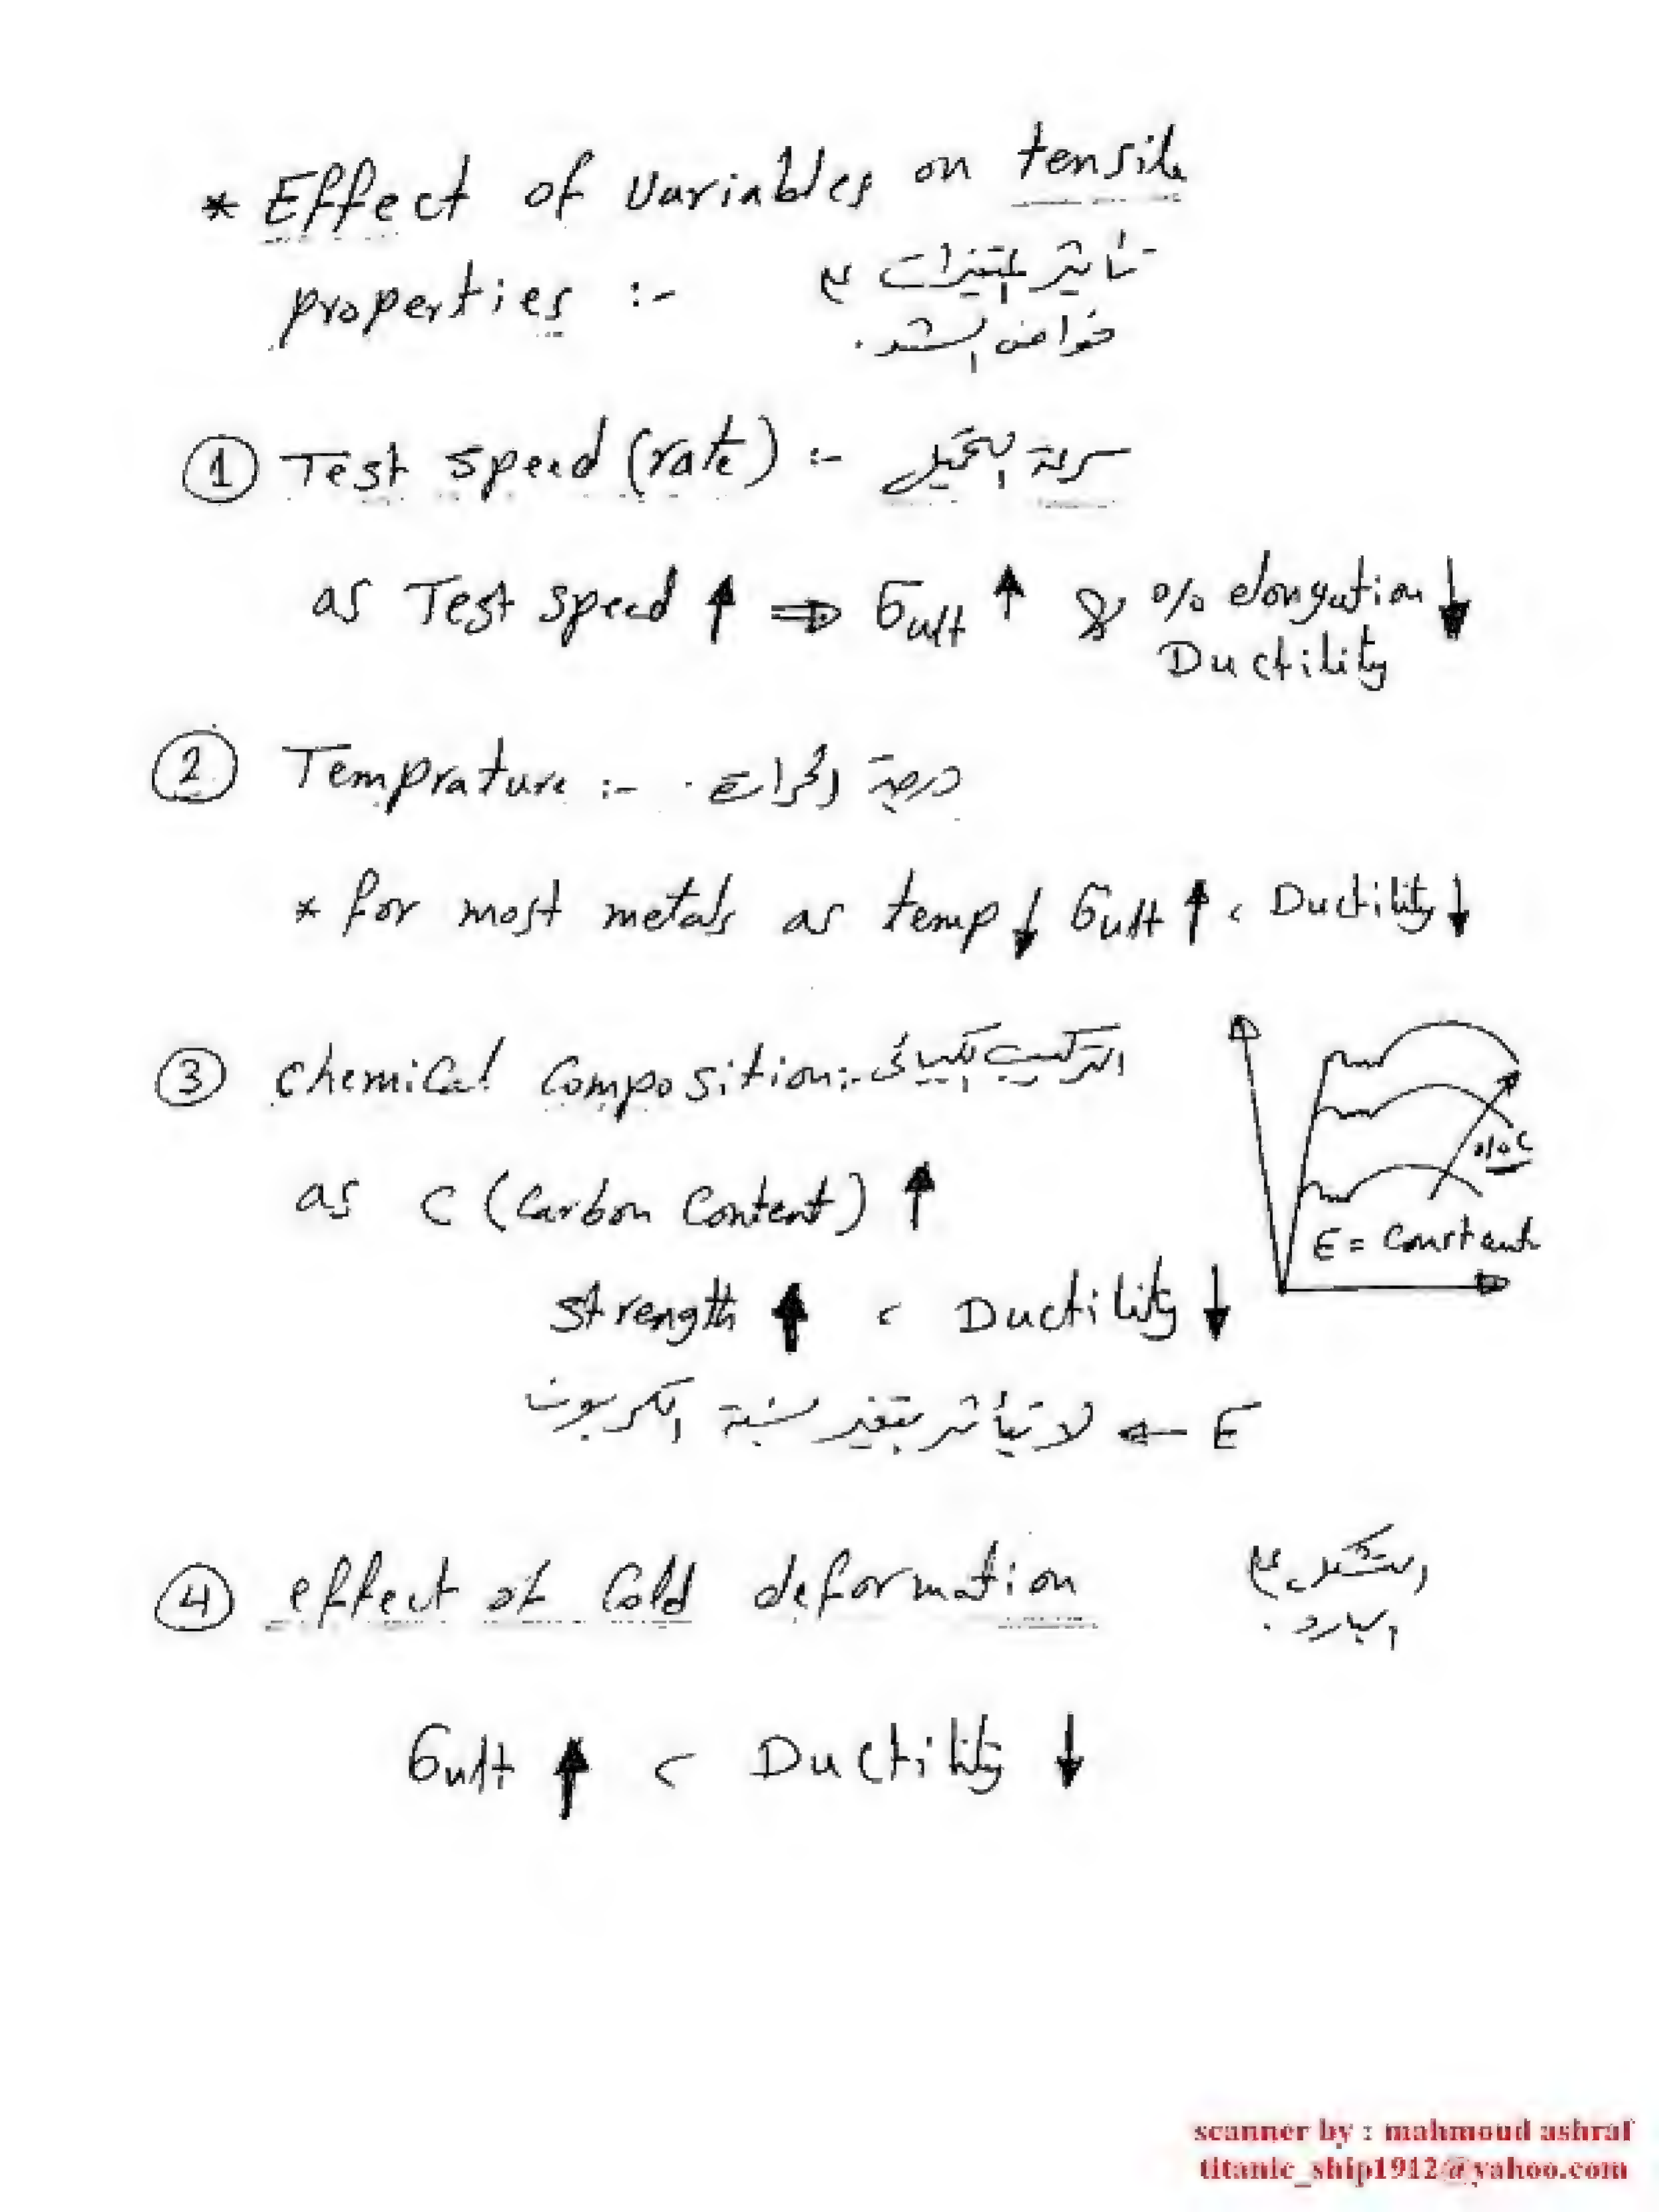 * Effect of variables on tensile
properties :- تأثير المتغيرات على
خواص الشد.
① Test speed (rate) :- سرعة التحميل
as Test speed ↑ ⇒ σult ↑ & % elongation ↓
Ductility
② Temprature :- درجة الحرارة .
* for most metals as temp ↓ σult ↑ ، Ductility ↓
③ Chemical Composition:- التركيب الكيميائى
as C (Carbon Content) ↑
%C
E = Constant
strength ↑ ، Ductility ↓
E ← لا تتأثر بتغير نسبة الكربون
④ effect of Cold deformation التشكيل على
البارد .
σult ↑ ، Ductility ↓
scanner by : mahmoud ashraf
titanic_ship1912@yahoo.com